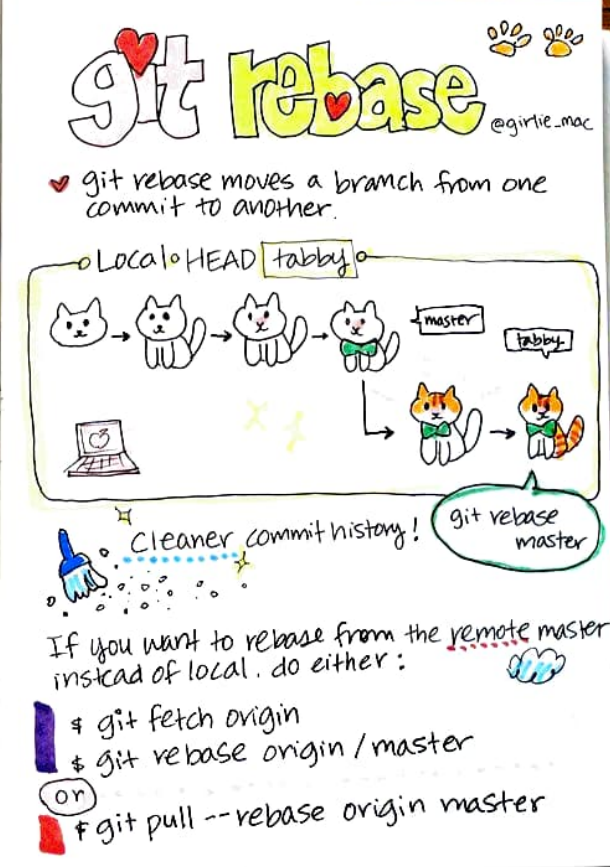 git rebase
@girlie_mac
git rebase moves a branch from one
commit to another.
Local HEAD tabby
master
tabby
git rebase
master
Cleaner commit history!
If you want to rebase from the remote master
instead of local. do either:
$ git fetch origin
$ git rebase origin/master
or
$ git pull --rebase origin master